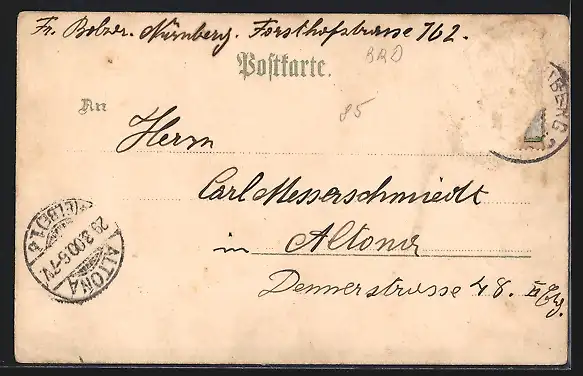 Fr. Bolzer. Nürnberg. Forsthofstrasse 762.
Postkarte.
BRD
85
An
Herrn
Carl Messerschmiedt
in Altona
Dennerstrasse 48. II Etg.
ALTONA
(ELBE) 1
29.3.00.6-7V.
BERG 2